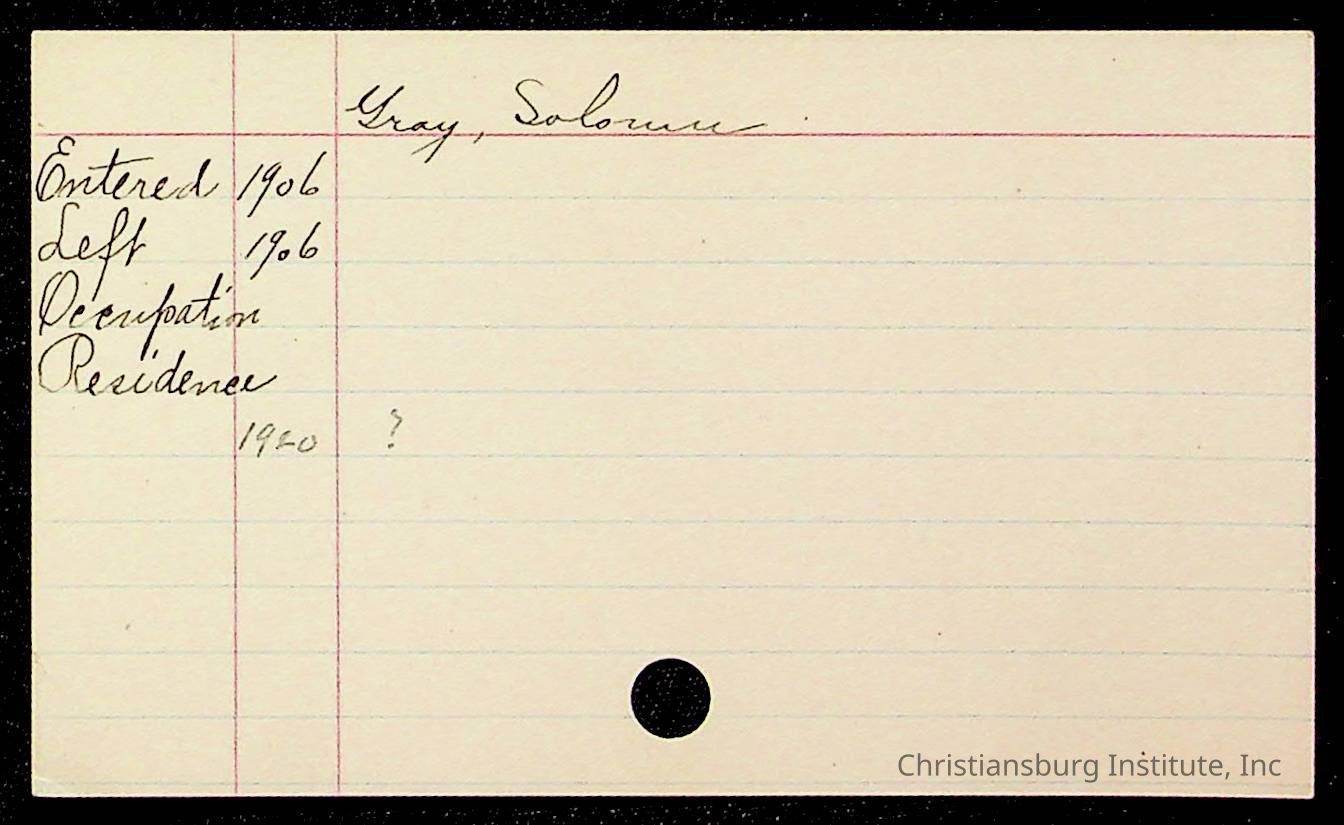 Gray, Solomon
Entered 1906
Left 1906
Occupation
Residence
1920 ?
Christiansburg Institute, Inc